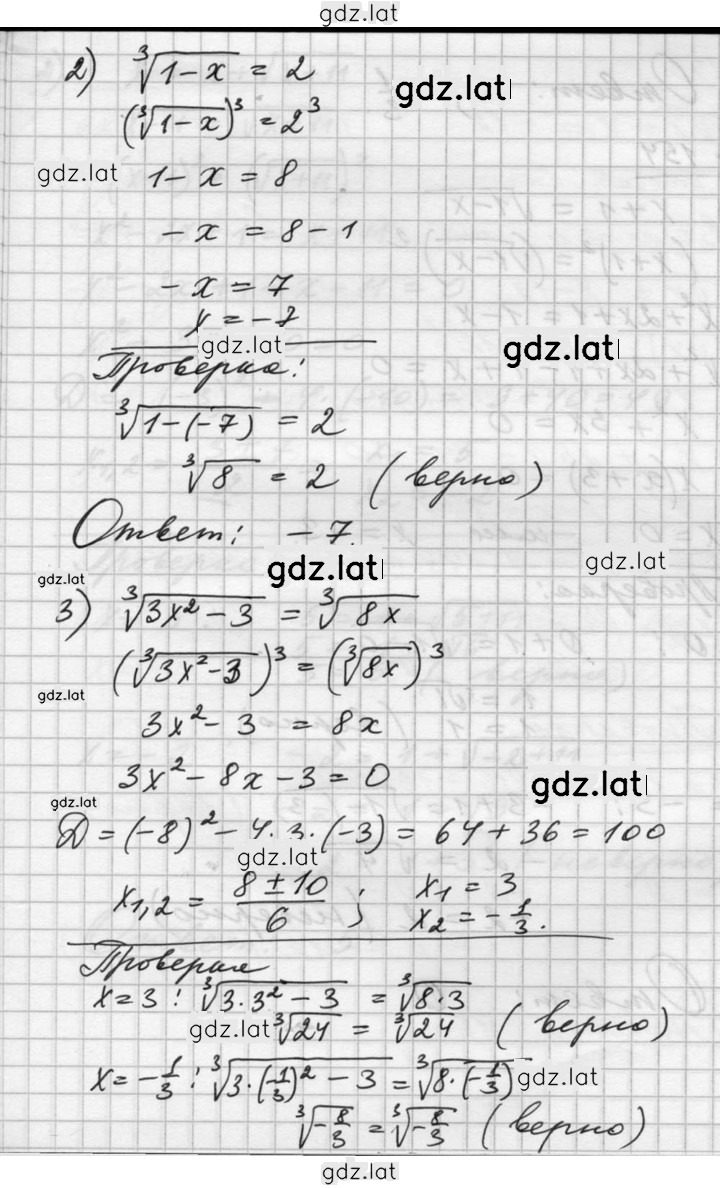 gdz.lat
2) ∛(1-x) = 2
gdz.lat
(∛(1-x))³ = 2³
gdz.lat
1 - x = 8
- x = 8 - 1
- x = 7
x = -7
gdz.lat
gdz.lat
Проверка:
∛(1-(-7)) = 2
∛8 = 2 (верно)
Ответ: -7.
gdz.lat
gdz.lat
gdz.lat
3) ∛(3x² - 3) = ∛(8x)
(∛(3x² - 3))³ = (∛(8x))³
gdz.lat
3x² - 3 = 8x
3x² - 8x - 3 = 0
gdz.lat
gdz.lat
D = (-8)² - 4·3·(-3) = 64 + 36 = 100
gdz.lat
x₁,₂ = (8 ± 10)/6 ; x₁ = 3
x₂ = -1/3.
Проверка
x = 3 : ∛(3·3² - 3) = ∛(8·3)
gdz.lat
∛24 = ∛24 (верно)
x = -1/3 : ∛(3·(-1/3)² - 3) = ∛(8·(-1/3))
gdz.lat
∛(-8/3) = ∛(-8/3) (верно)
gdz.lat